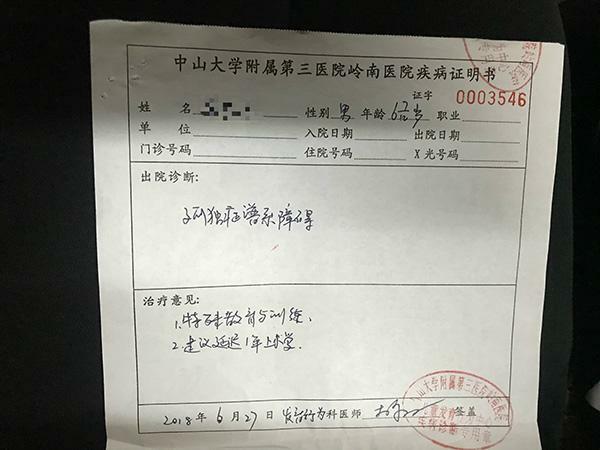 中山大学附属第三医院岭南医院疾病证明书
证字 0003546
姓 名 性别 男 年龄 6 岁 职业
单 位 入院日期 出院日期
门诊号码 住院号码 X光号码
出院诊断:
孤独症谱系障碍
治疗意见:
1. 特殊教育与训练.
2. 建议延迟1年上学.
2018 年 6 月 27 日 发育行为科医师 签盖
中山大学附属第三医院岭南医院
疾病诊断专用章